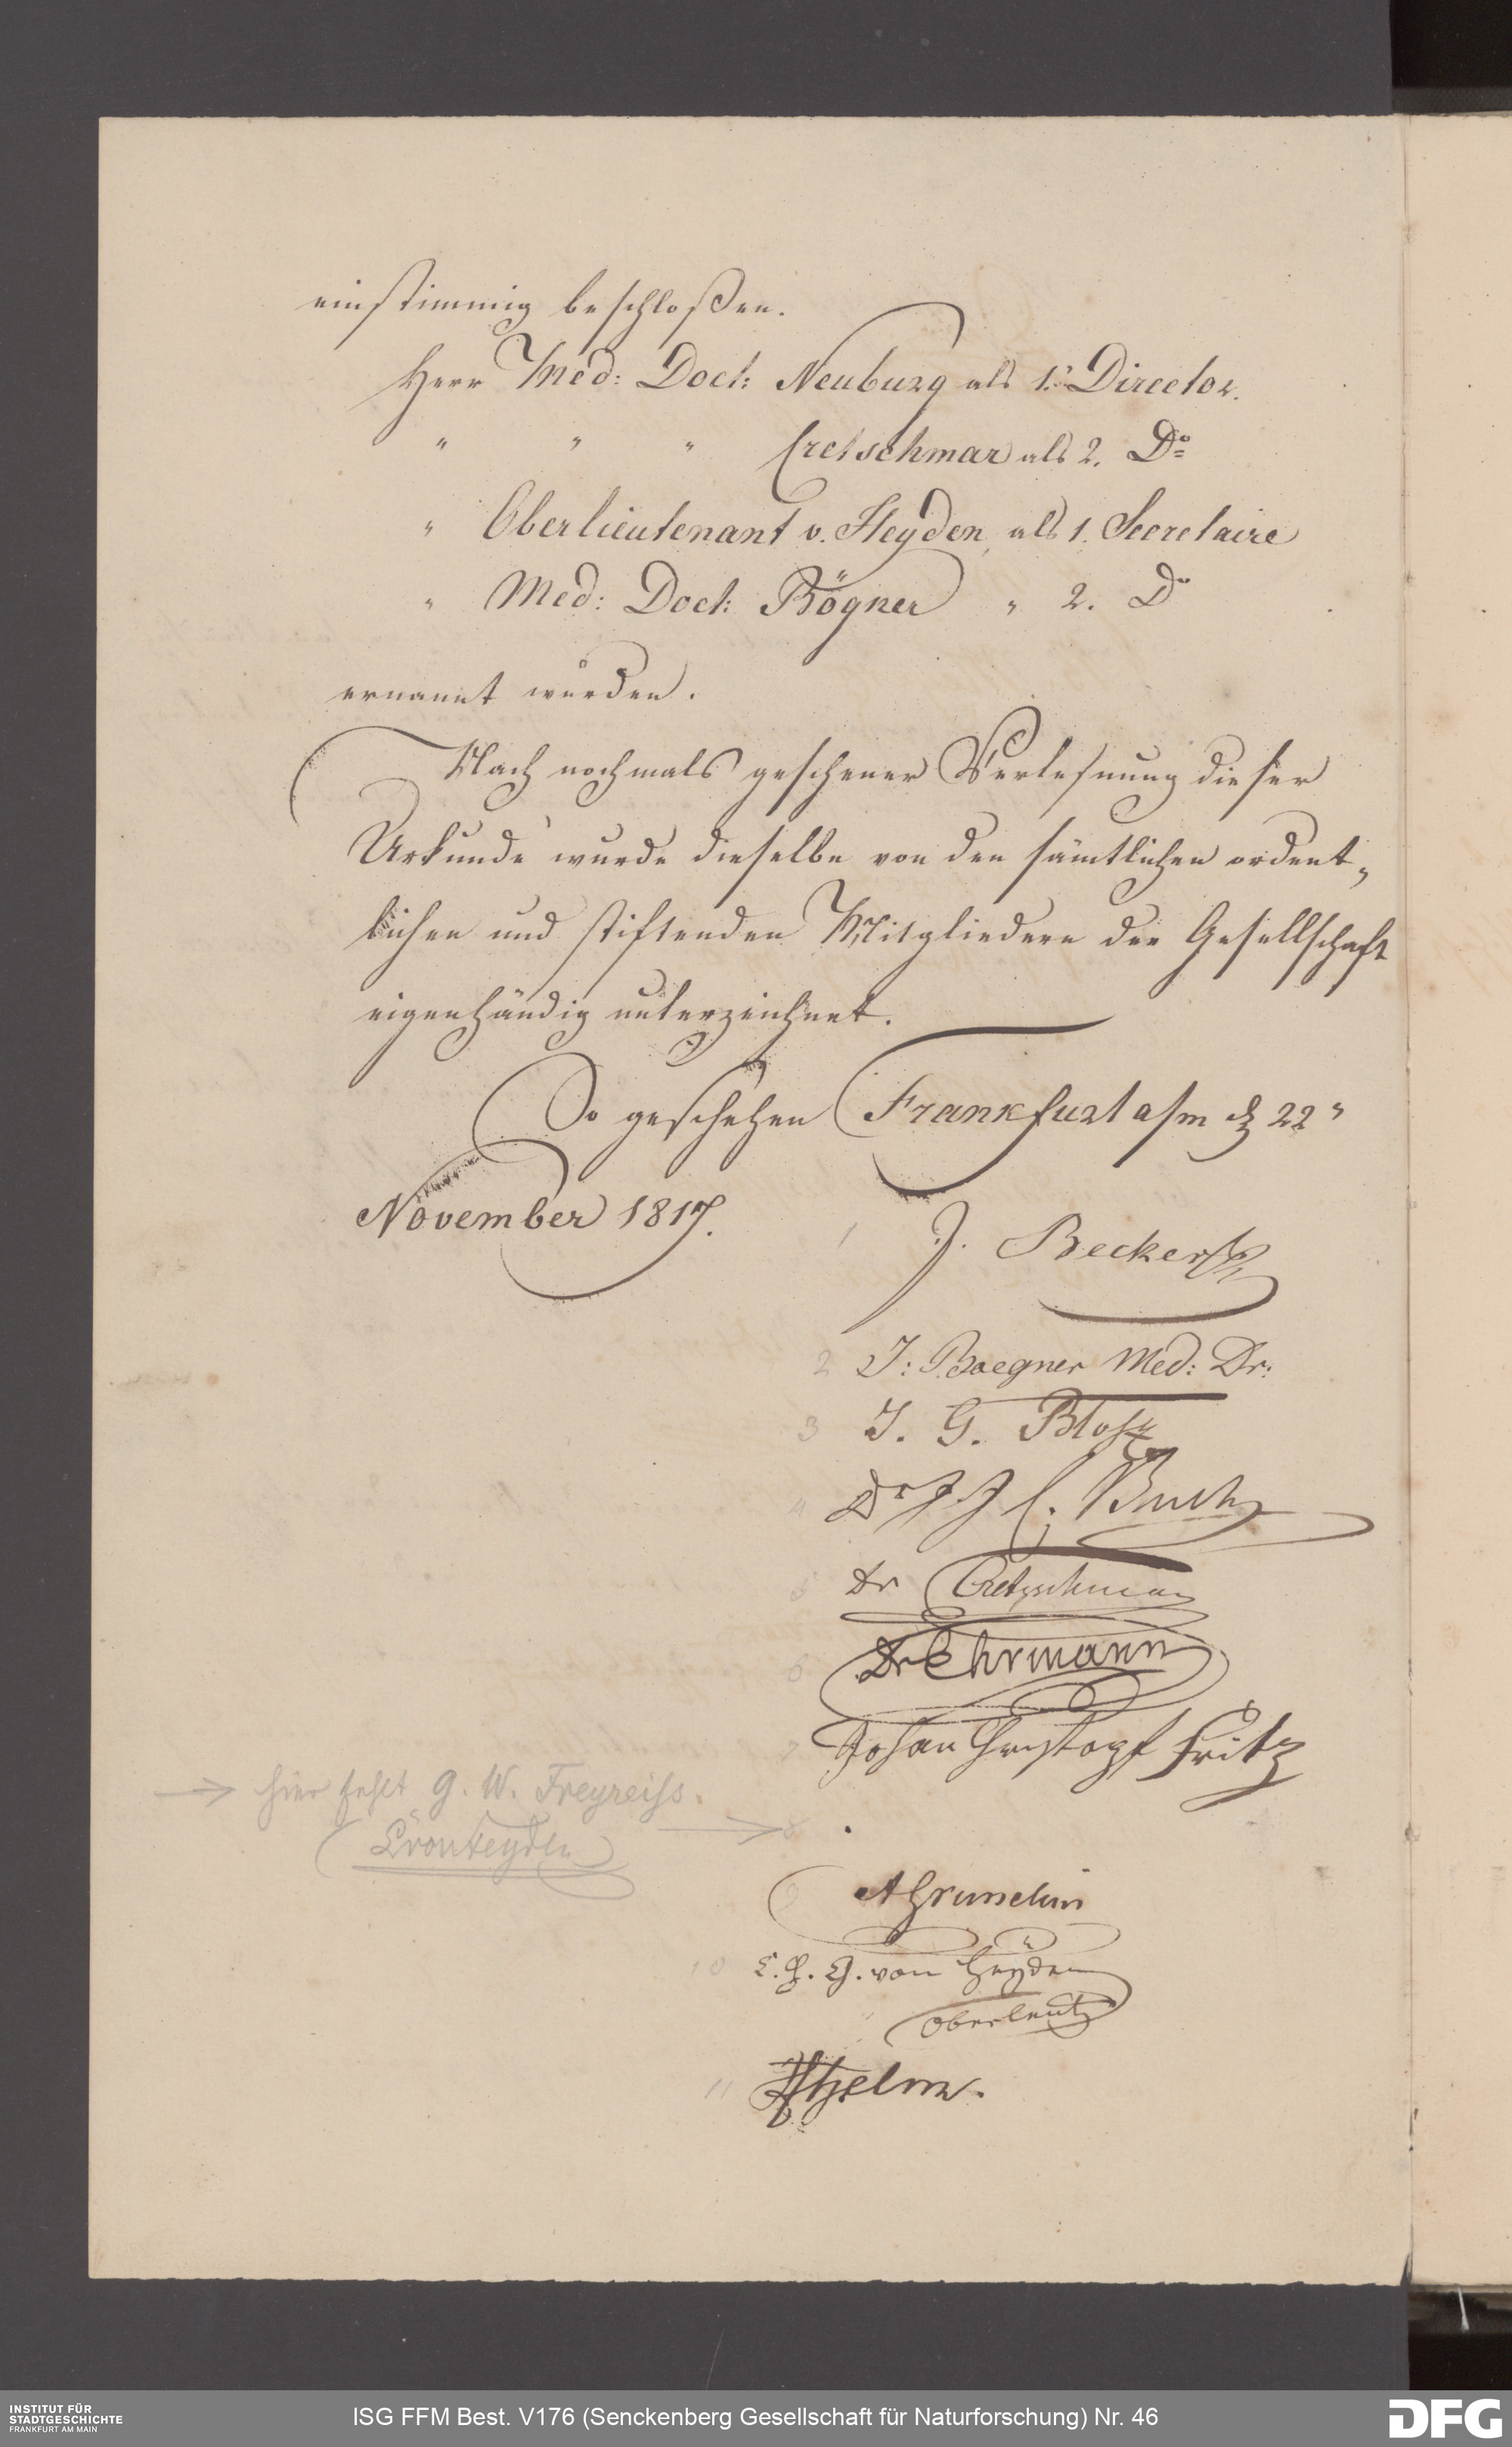 einstimmig beschloßen.
Herr Med: Doct: Neuburg als 1.r Director.
" " " Cretschmar als 2. Do
" Oberlieutenant v. Heyden, als 1. Secretaire
" Med: Doct: Bögner " 2. Do
ernannt wurden.
Nach nochmals geschener Verlesnung dieser
Urkunde wurde dieselbe von den sämtlichen ordent„
lichen und stiftenden Mitgliedern der Gesellschaft
eigenhändig unterzeichnet.
So geschehen Frankfurt a/m d 22"
November 1817.
1 J. Becker
2 J: Boegner Med: Dr:
3 J. G. Bloß
4 Dr J J C. Buch
5 Dr Cretzschmar
6 Dr Ehrmann
7 Johan Christoph Fritz
→ hier fehlt G. W. Freyreiss.
L von Heyden
→ 8
9 A Grunelius
10 C. H. G. von Heyden
Oberleut
11 Helm.
INSTITUT FÜR
STADTGESCHICHTE
FRANKFURT AM MAIN
ISG FFM Best. V176 (Senckenberg Gesellschaft für Naturforschung) Nr. 46
DFG